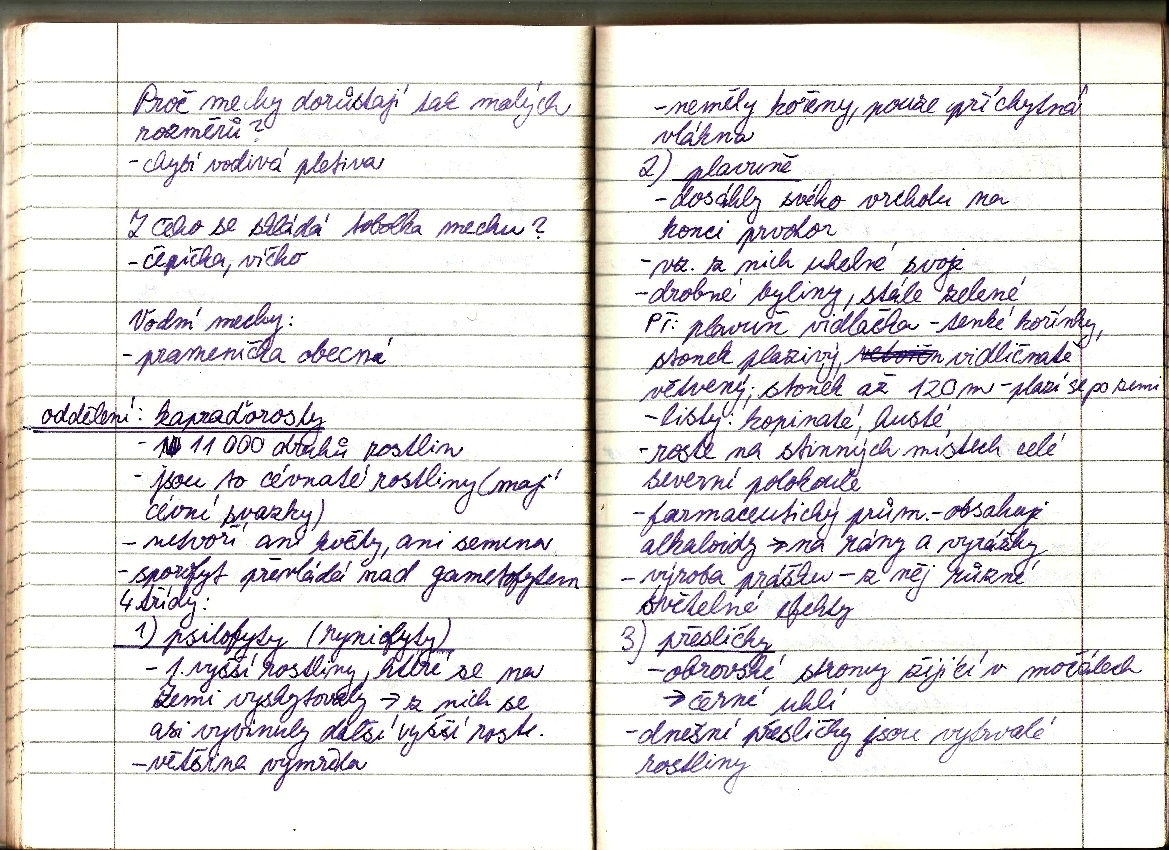 Proč mechy dorůstají tak malých
rozměrů?
- chybí vodivá pletiva
Z čeho se skládá tobolka mechu?
- čepička, víčko
Vodní mechy:
- pramenička obecná
oddělení: kapraďorosty
- 11 000 druhů rostlin
- jsou to cévnaté rostliny (mají
cévní svazky)
- netvoří ani květy, ani semena
- sporofyt převládá nad gametofytem
4 třídy:
1) psilofyty (ryniofyty)
- 1. vyšší rostliny, které se na
Zemi vyskytovaly → z nich se
asi vyvinuly další vyšší rostl.
- většina vymřela
- neměly kořeny, pouze příchytná
vlákna
2) plavuně
- dosáhly svého vrcholu na
konci prvohor
- vz. z nich uhelné sloje
- drobné byliny, stále zelené
Př: plavuň vidlačka - tenké kořínky,
stonek plazivý, vidličnatě
větvený; stonek až 120 m - plazí se po zemi
- listy: kopinaté, husté
- roste na stinných místech celé
severní polokoule
- farmaceutický prům. - obsahují
alkaloidy → na rány a vyrážky
- výroba prášku - z něj různé
světelné efekty
3) přesličky
- obrovské stromy žijící v močálech
→ černé uhlí
- dnešní přesličky jsou vytrvalé
rostliny